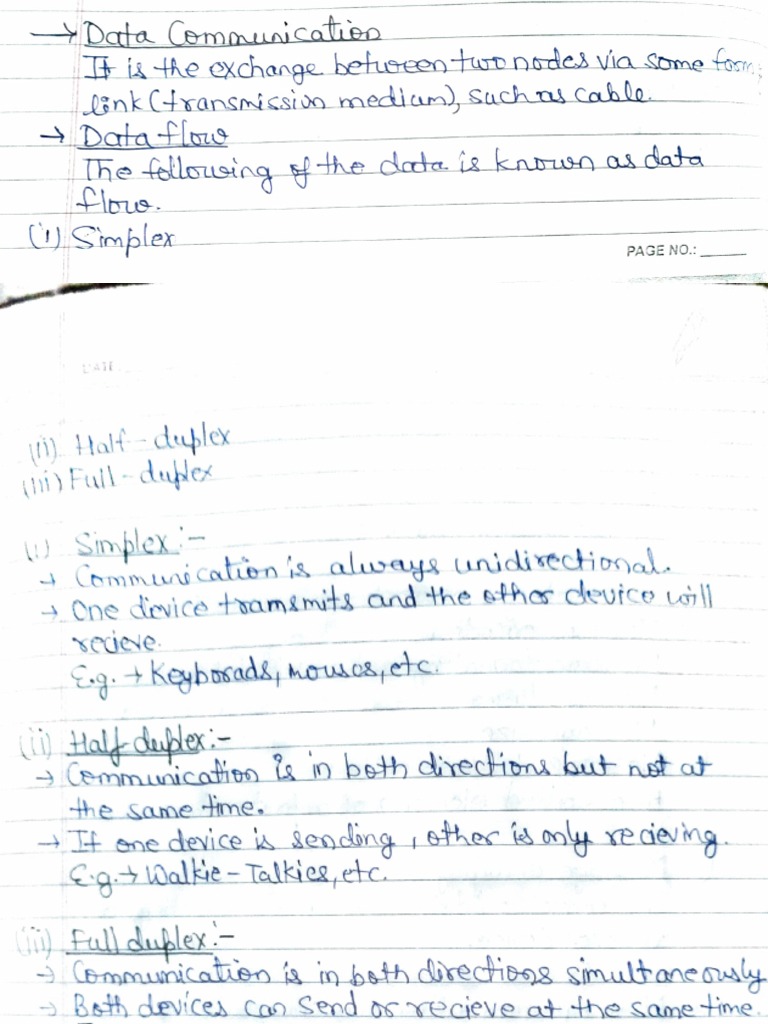 → Data Communication
It is the exchange between two nodes via some form
link (transmission medium), such as cable.
→ Data flow
The following of the data is known as data
flow.
(i) Simplex
PAGE NO.:
DATE
(ii) Half-duplex
(iii) Full-duplex
(i) Simplex:-
→ Communication is always unidirectional.
→ One device tramsmits and the other device will
recieve.
E.g. → Keyborads, mouses, etc.
(ii) Half duplex:-
→ Communication is in both directions but not at
the same time.
→ If one device is sending, other is only recieving.
E.g. → Walkie-Talkies, etc.
(iii) Full duplex:-
→ Communication is in both directions simultaneously
→ Both devices can send or recieve at the same time.